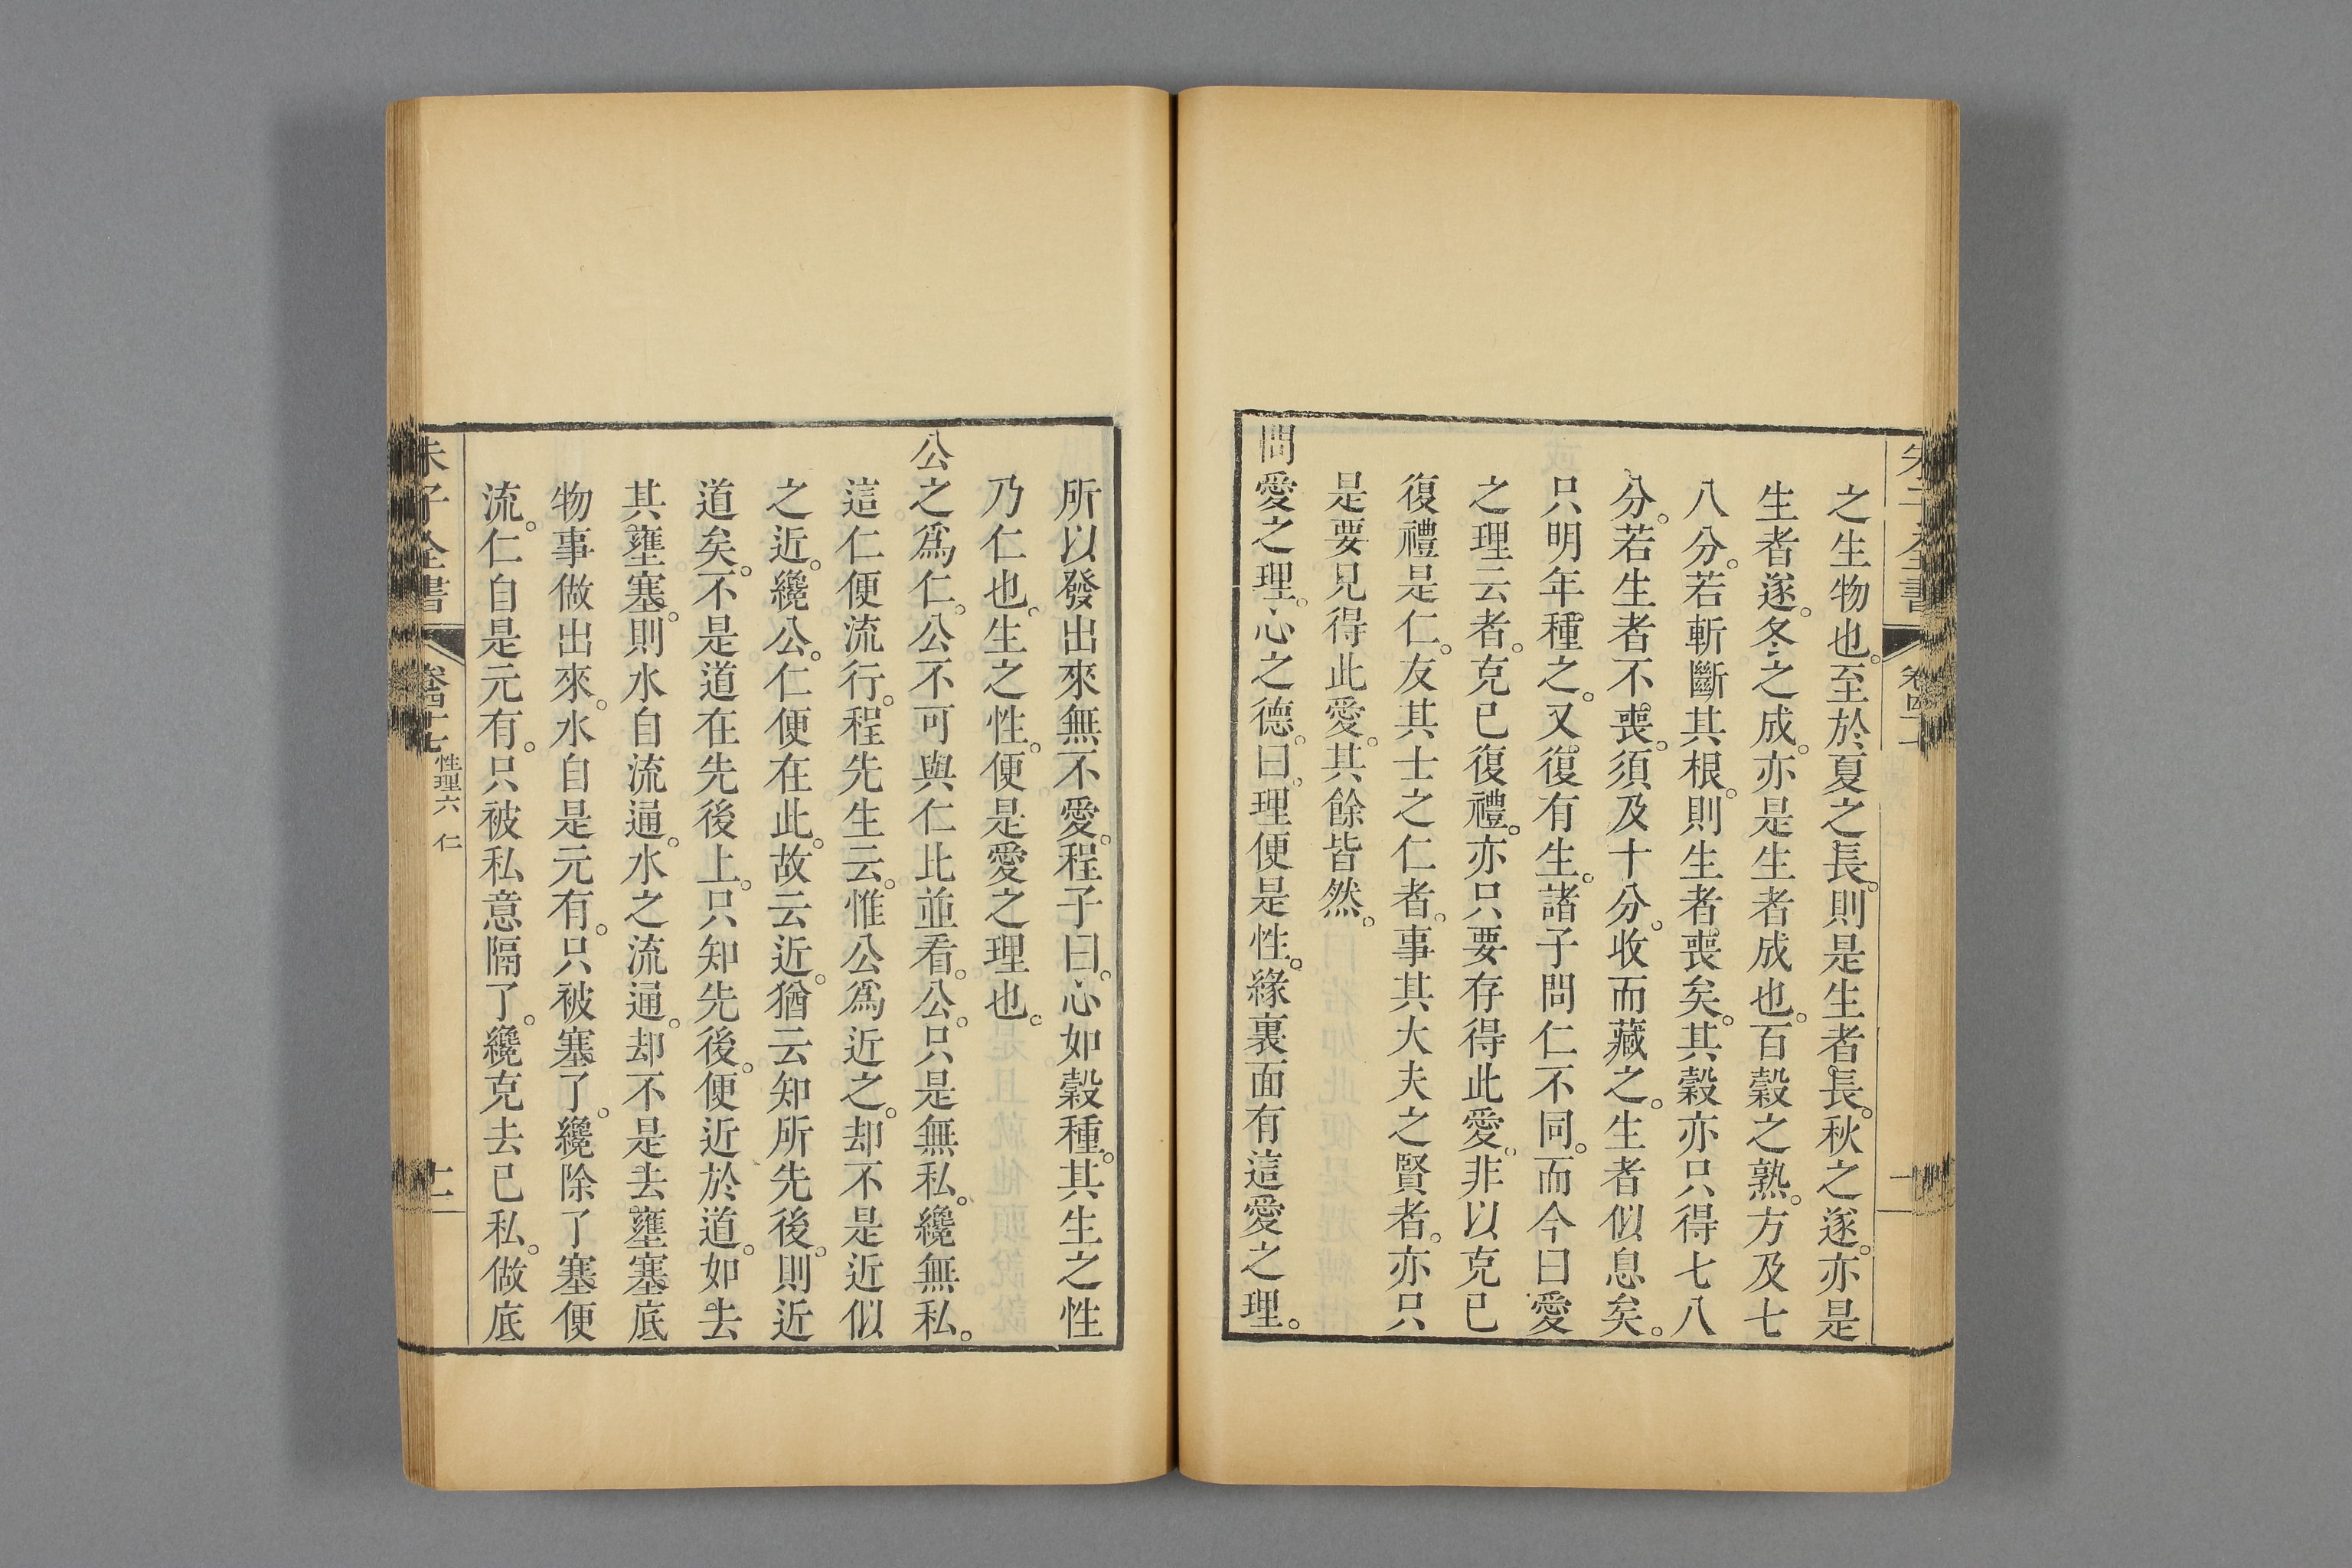 之生物也。至於夏之長。則是生者長。秋之遂。亦是
生者遂。冬之成。亦是生者成也。百穀之熟。方及七
八分。若斬斷其根。則生者喪矣。其穀亦只得七八
分。若生者不喪。須及十分。收而藏之。生者似息矣。
只明年種之。又復有生。諸子問仁不同。而今曰愛
之理云者。克己復禮。亦只要存得此愛。非以克己
復禮是仁。友其士之仁者。事其大夫之賢者。亦只
是要見得此愛。其餘皆然。
問愛之理。心之德。曰。理便是性。緣裏面有這愛之理。
所以發出來無不愛。程子曰。心如穀種。其生之性
乃仁也。生之性。便是愛之理也。
公之爲仁。公不可與仁比並看。公只是無私。纔無私。
這仁便流行。程先生云。惟公爲近之。却不是近似
之近。纔公。仁便在此。故云近。猶云知所先後。則近
道矣。不是道在先後上。只知先後。便近於道。如去
其壅塞。則水自流通。水之流通。却不是去壅塞底
物事做出來。水自是元有。只被塞了。纔除了塞便
流。仁自是元有。只被私意隔了。纔克去己私。做底
朱子全書
性理六 仁